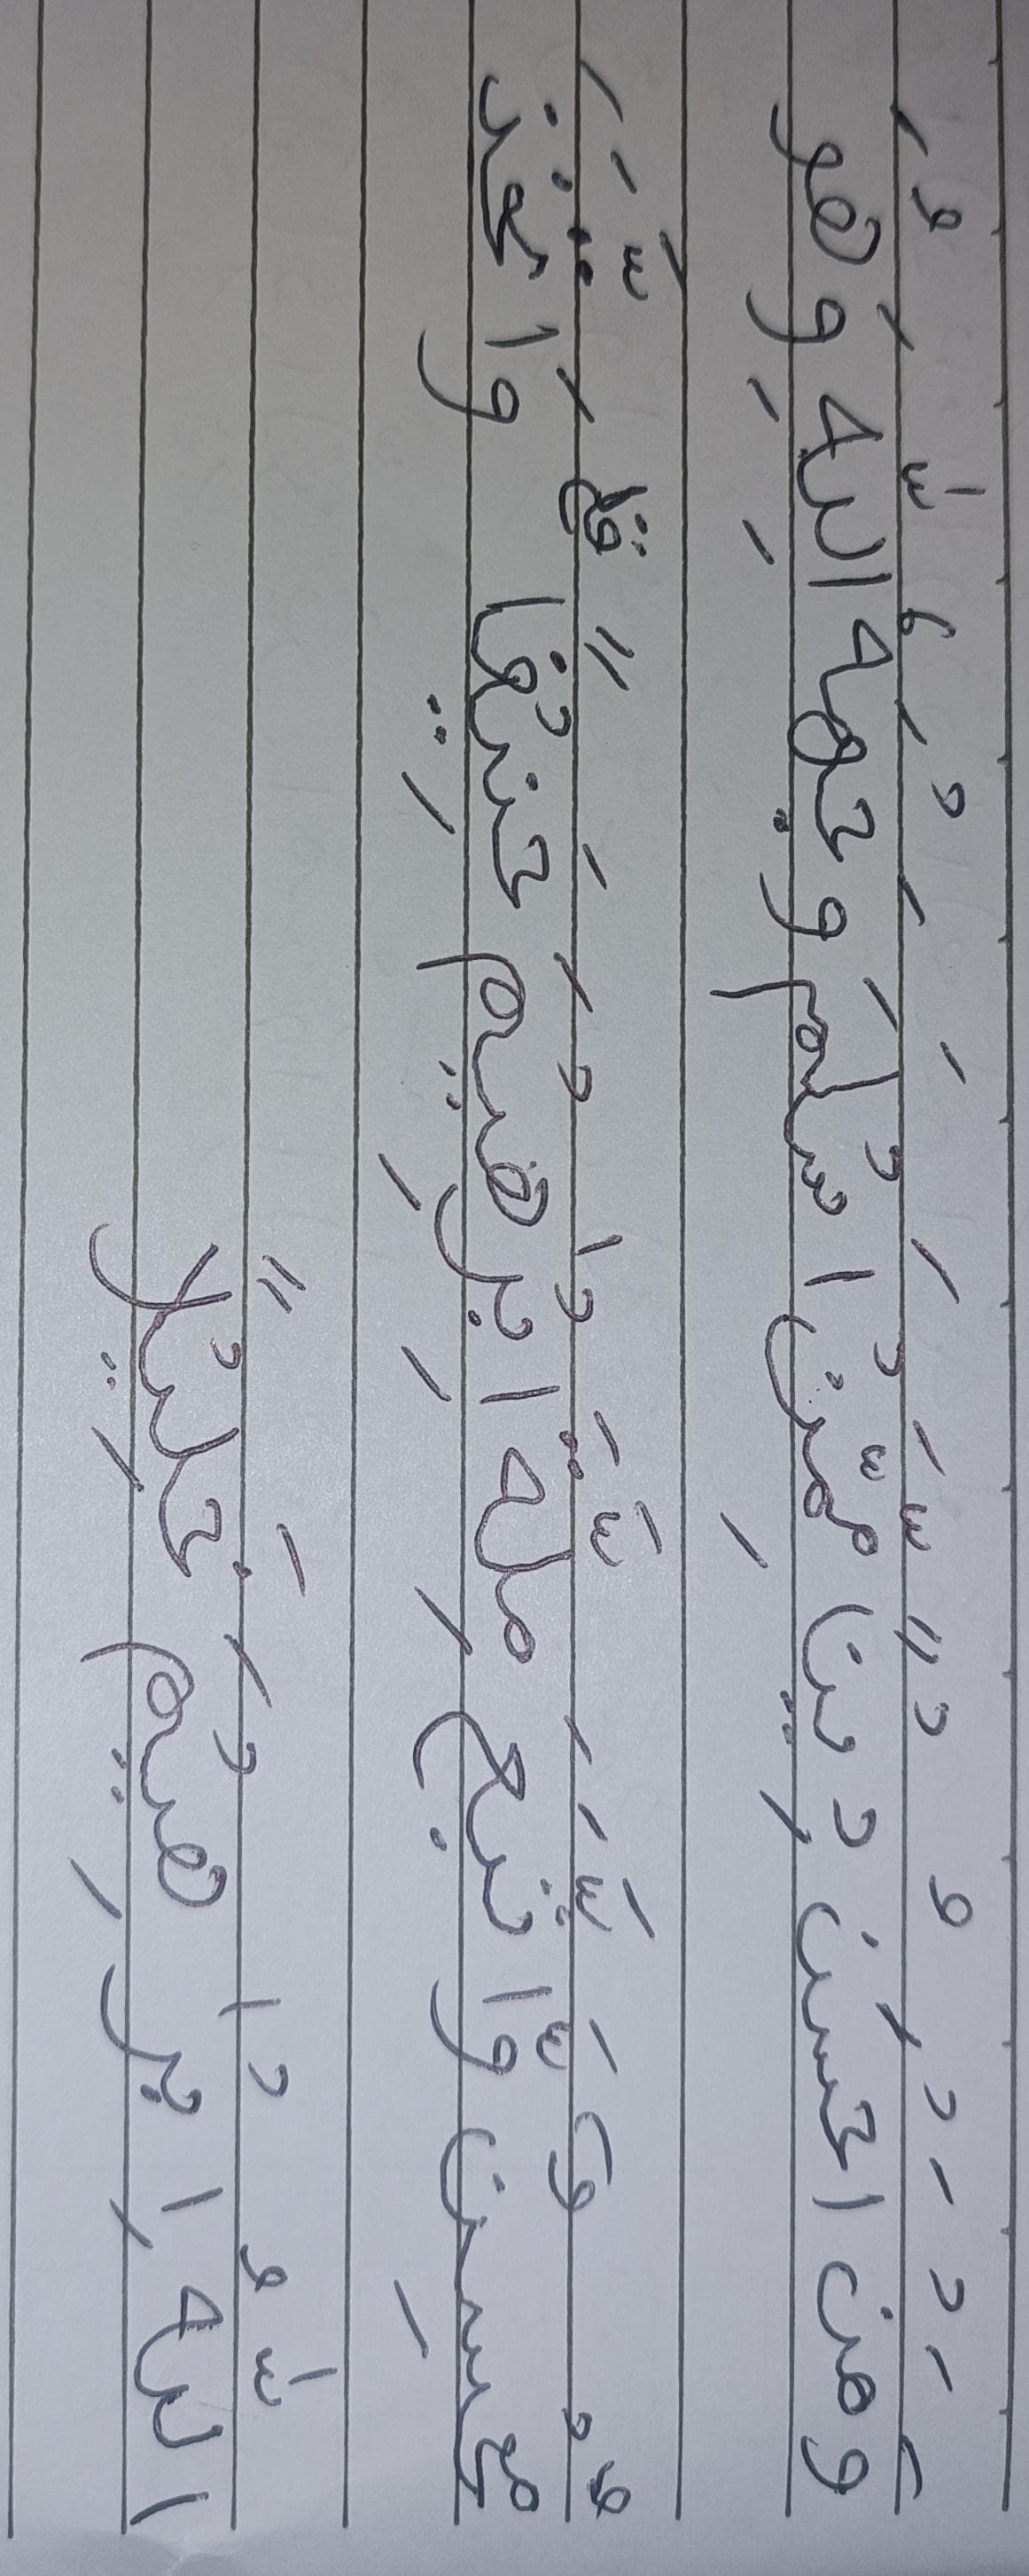 وَمَنْ اَحْسَنُ دِيْنًا مِّمَّنْ اَسْلَمَ وَجْهَهٗ اللّٰهِ وَهُوَ
مُحْسِنٌ وَّاتَّبَعَ مِلَّةَ اِبْرٰهِيْمَ حَنِيْفًا ۗ وَاتَّخَذَ
اللّٰهُ اِبْرٰهِيْمَ خَلِيْلًا